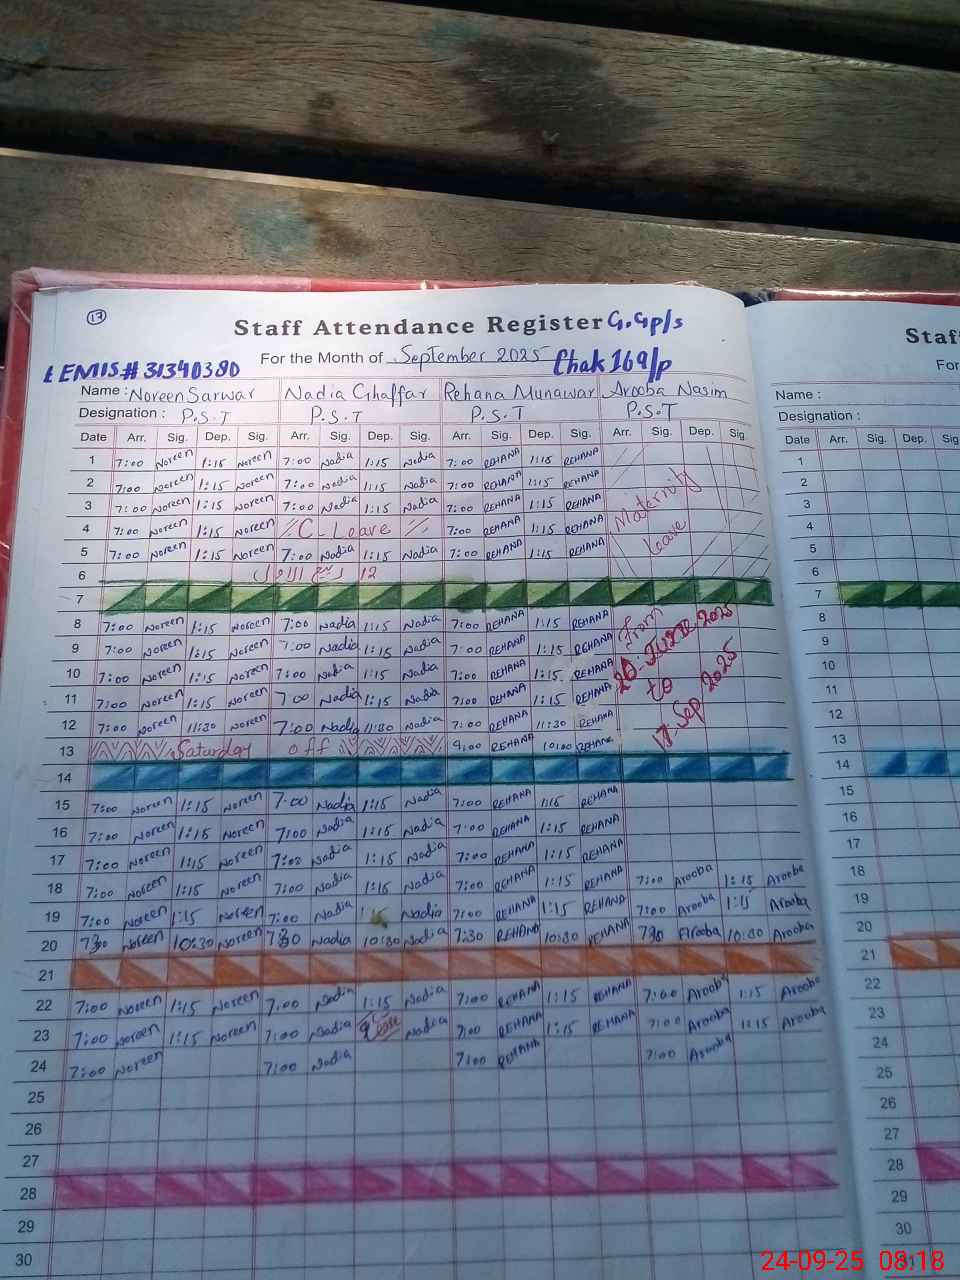 17
Staff Attendance Register G.Gp/s
For the Month of September 2025 Chak 169/p
EMIS# 31340380
Name : Noreen Sarwar Nadia Ghaffar Rehana Munawar Arooba Nasim
Designation : P.S.T P.S.T P.S.T P.S.T
Date Arr. Sig. Dep. Sig. Arr. Sig. Dep. Sig. Arr. Sig. Dep. Sig. Arr. Sig. Dep. Sig.
1 7:00 Noreen 1:15 Noreen 7:00 Nadia 1:15 Nadia 7:00 REHANA 1:15 REHANA
2 7:00 Noreen 1:15 Noreen 7:00 Nadia 1:15 Nadia 7:00 REHANA 1:15 REHANA
3 7:00 Noreen 1:15 Noreen 7:00 Nadia 1:15 Nadia 7:00 REHANA 1:15 REHANA
4 7:00 Noreen 1:15 Noreen C. Leave 7:00 REHANA 1:15 REHANA
5 7:00 Noreen 1:15 Noreen 7:00 Nadia 1:15 Nadia 7:00 REHANA 1:15 REHANA
Maternity
Leave
6 12 ربیع الاول
7
8 7:00 Noreen 1:15 Noreen 7:00 Nadia 1:15 Nadia 7:00 REHANA 1:15 REHANA
9 7:00 Noreen 1:15 Noreen 7:00 Nadia 1:15 Nadia 7:00 REHANA 1:15 REHANA
10 7:00 Noreen 1:15 Noreen 7:00 Nadia 1:15 Nadia 7:00 REHANA 1:15 REHANA
11 7:00 Noreen 1:15 Noreen 7:00 Nadia 1:15 Nadia 7:00 REHANA 1:15 REHANA
12 7:00 Noreen 11:30 Noreen 7:00 Nadia 11:30 Nadia 7:00 REHANA 11:30 REHANA
From
20-June 2025
to
17-Sep 2025
13 Saturday off 9:00 REHANA 10:00 REHANA
14
15 7:00 Noreen 1:15 Noreen 7:00 Nadia 1:15 Nadia 7:00 REHANA 1:15 REHANA
16 7:00 Noreen 1:15 Noreen 7:00 Nadia 1:15 Nadia 7:00 REHANA 1:15 REHANA
17 7:00 Noreen 1:15 Noreen 7:00 Nadia 1:15 Nadia 7:00 REHANA 1:15 REHANA
18 7:00 Noreen 1:15 Noreen 7:00 Nadia 1:15 Nadia 7:00 REHANA 1:15 REHANA 7:00 Arooba 1:15 Arooba
19 7:00 Noreen 1:15 Noreen 7:00 Nadia 1:15 Nadia 7:00 REHANA 1:15 REHANA 7:00 Arooba 1:15 Arooba
20 7:30 Noreen 10:30 Noreen 7:30 Nadia 10:30 Nadia 7:30 REHANA 10:30 REHANA 7:30 Arooba 10:30 Arooba
21
22 7:00 Noreen 1:15 Noreen 7:00 Nadia 1:15 Nadia 7:00 REHANA 1:15 REHANA 7:00 Arooba 1:15 Arooba
23 7:00 Noreen 1:15 Noreen 7:00 Nadia Nadia 7:00 REHANA 1:15 REHANA 7:00 Arooba 1:15 Arooba
24 7:00 Noreen 7:00 Nadia 7:00 REHANA 7:00 Arooba
25
26
27
28
29
30
Staf
For
Name :
Designation :
Date Arr. Sig. Dep. Sig.
1
2
3
4
5
6
7
8
9
10
11
12
13
14
15
16
17
18
19
20
21
22
23
24
25
26
27
28
29
30
31
24-09-25 08:18